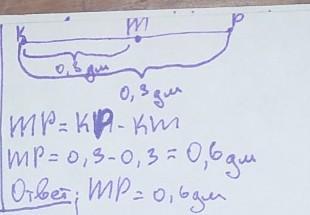 К М Р
0,3 дм
0,3 дм
МР = КР - КМ
МР = 0,3 - 0,3 = 0,6 дм
Ответ: МР = 0,6 дм